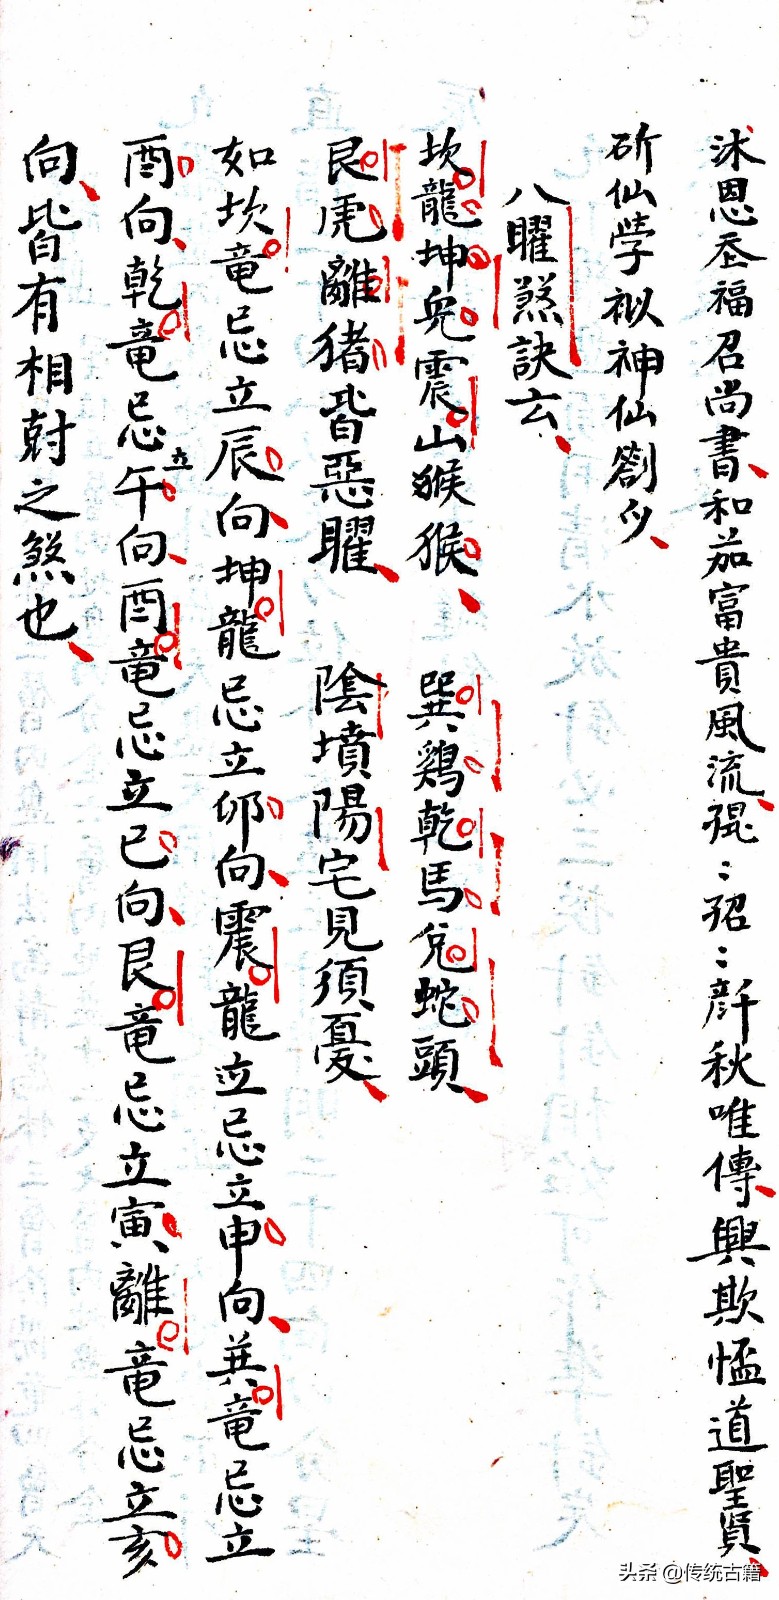 沐恩丕福召尚書和茄富貴風流混：招：彦千秋唯傳興欺恤道聖賢、
斫仙学袱神仙劉
八曜煞訣云、
坎龍坤兔震山猴猴、巽鷄乾馬兌蛇頭、
艮虎離猪皆惡曜、陰墳陽宅見須憂、
如坎竜忌立辰向、坤龍忌立卯向、震龍立忌立申向、巽竜忌立
酉向、乾竜忌立午向、酉竜忌立巳向、艮竜忌立寅、離竜忌立亥
向、皆有相尅之煞也、
头条 @传统古籍